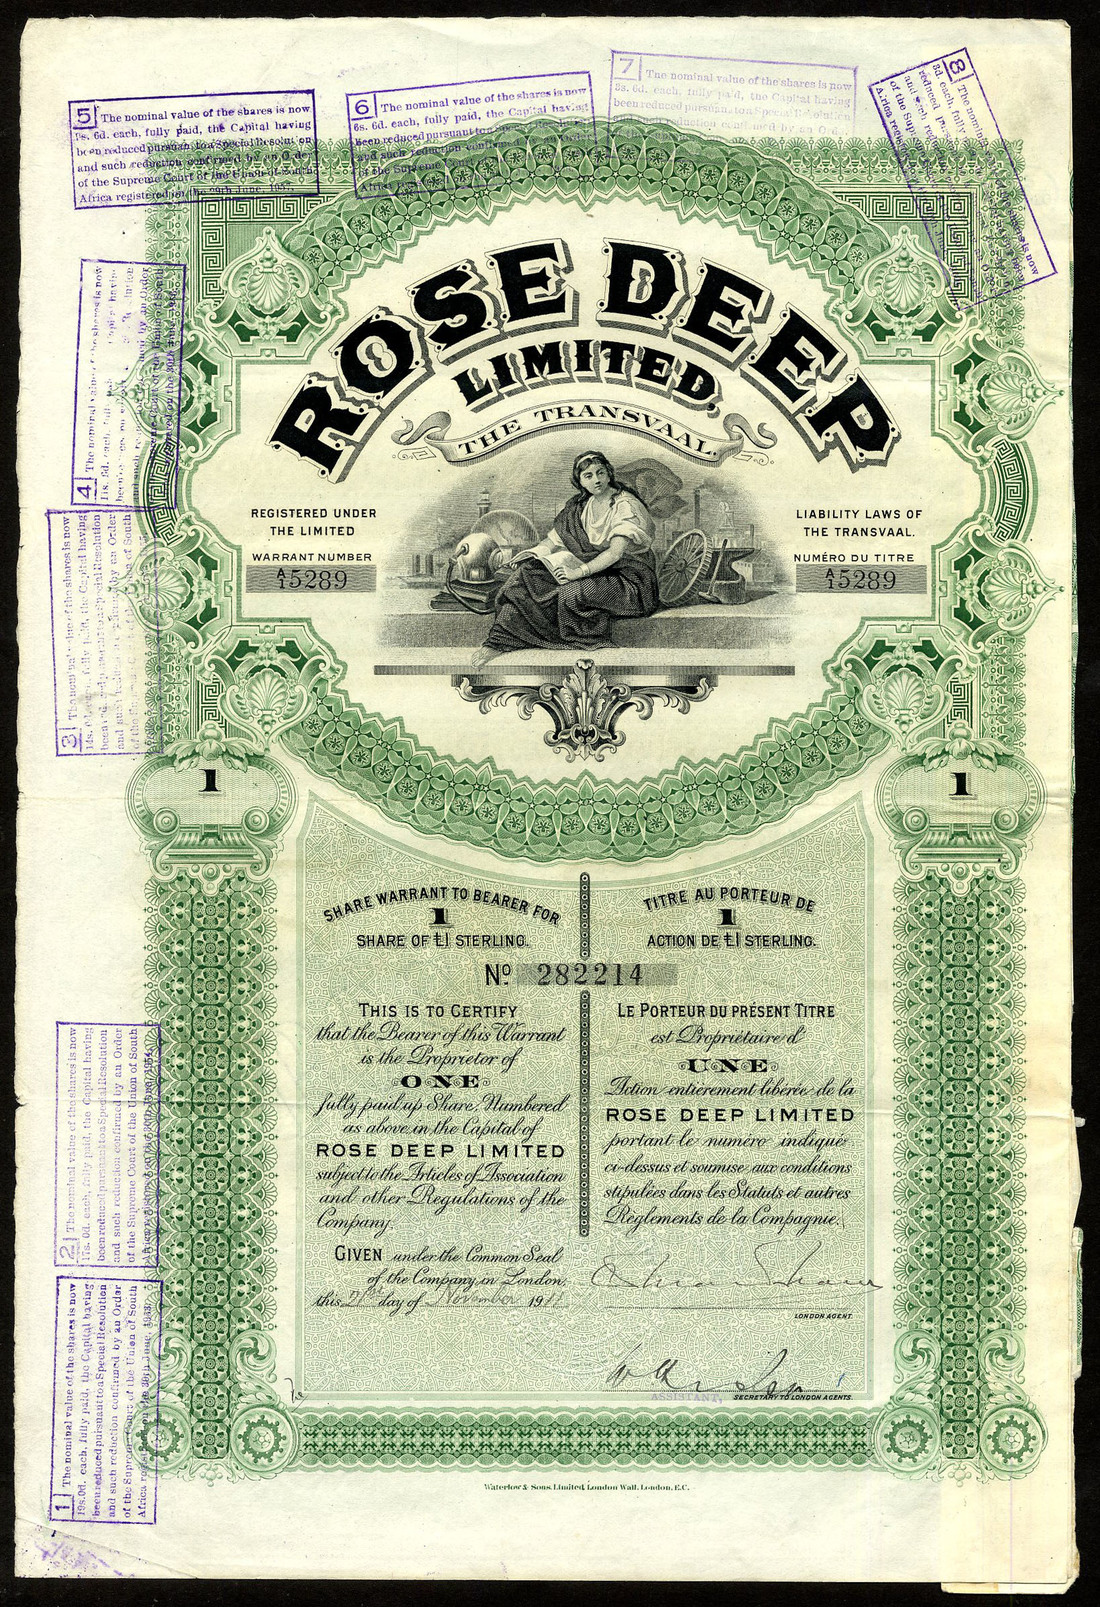 5 The nominal value of the shares is now
6d. each, fully paid, the Capital having
been reduced pursuant to a Special Resolution
and such reduction confirmed by an Order
of the Supreme Court of the Union of South
Africa registered on the 29th June,
6 The nominal value of the shares is now
6s. 6d. each, fully paid, the Capital having
been reduced pursuant to a
and such reduction confirmed
of the Supreme Court
7 The nominal value of the shares is now
6d. each, fully paid, the Capital having
been reduced pursuant to a Special Resolution
such reduction confirmed by an Order
8 The nominal
3d. each, fully
reduced
and such
of the Supreme
Africa
4 The nominal value of the shares is now
11s. 9d. each, fully paid
Capital having
by an Order
on the 30th June
3 The nominal value of the shares is now
14s. fully paid, the Capital having
been reduced Special Resolution
and such by an Order
of the of South
ROSE DEEP
LIMITED,
THE TRANSVAAL.
REGISTERED UNDER
THE LIMITED
LIABILITY LAWS OF
THE TRANSVAAL.
WARRANT NUMBER
A/1 5289
NUMÉRO DU TITRE
A/1 5289
1
1
SHARE WARRANT TO BEARER FOR
1
SHARE OF £1 STERLING.
TITRE AU PORTEUR DE
1
ACTION DE £1 STERLING.
No. 282214
THIS IS TO CERTIFY
that the Bearer of this Warrant
is the Proprietor of
ONE
fully paid up Share, Numbered
as above in the Capital of
ROSE DEEP LIMITED
subject to the Articles of Association
and other Regulations of the
Company.
GIVEN under the Common Seal
of the Company in London,
this 21st day of November 1911
LE PORTEUR DU PRÉSENT TITRE
est Propriétaire d'
UNE
Action entièrement libérée de la
ROSE DEEP LIMITED
portant le numéro indiqué
ci-dessus et soumise aux conditions
stipulées dans les Statuts et autres
Règlements de la Compagnie.
LONDON AGENT.
ASSISTANT,
SECRETARY TO LONDON AGENTS.
2 The nominal value of the shares is now
17s. 0d. each, fully paid, the Capital having
been reduced pursuant to a Special Resolution
and such reduction confirmed by an Order
of the Supreme Court of the Union of South
Africa
1 The nominal value of the shares is now
19s. 0d. each, fully paid, the Capital having
been reduced pursuant to a Special Resolution
and such reduction confirmed by an Order
of the Supreme Court of the Union of South
Africa registered on the 30th June,
Waterlow & Sons Limited, London Wall, London, E.C.